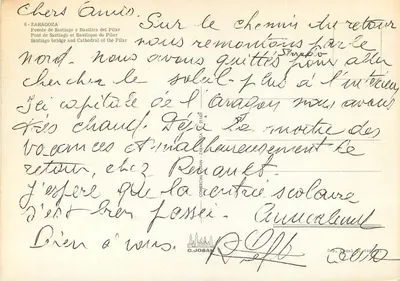 Chers Amis.
6 - ZARAGOZA
Puente de Santiago y Basílica del Pilar
Pont de Santiago et Basilique du Pilar
Santiago bridge and Cathedral of the Pilar
Sur le chemin du retour
nous remontons par le
Nord. nous avons quittés pour aller
chercher le soleil plus à l'intérieur
Ici capitale de l'aragon nous avons
très chaud. Déjà la moitié des
vacances et malheureusement le
retour, chez Renault.
J'espère que la rentrée scolaire
s'est bien passée.
Bien à vous.